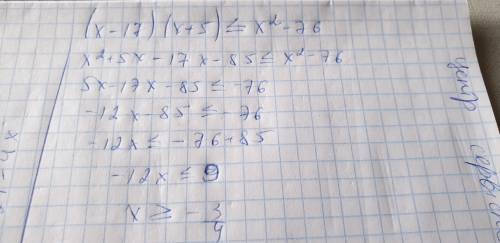 (x-17)(x+5) ≤ x²-76
x²+5x-17x-85 ≤ x²-76
5x-17x-85 ≤ -76
-12x-85 ≤ -76
-12x ≤ -76+85
-12x ≤ 9
x ≥ -3/4